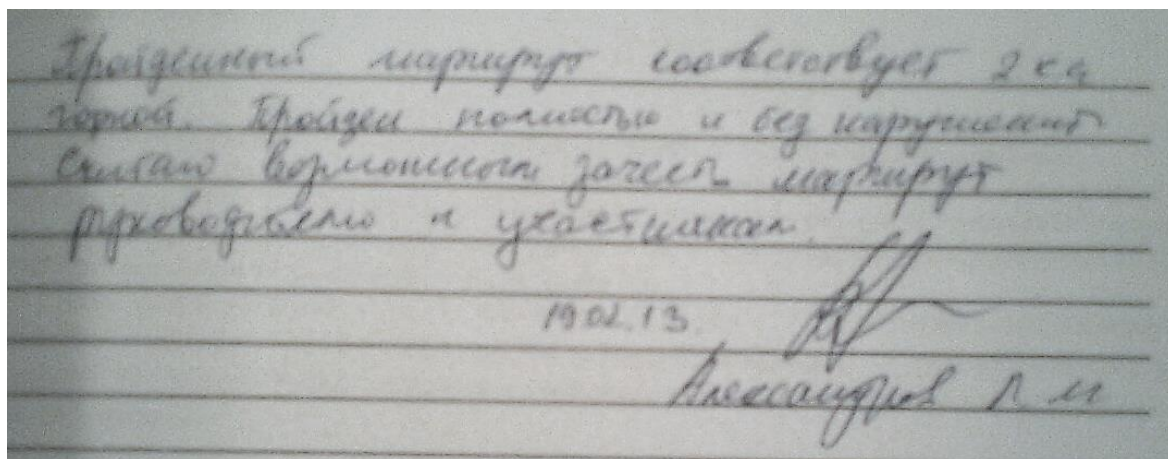 Пройденный маршрут соответствует 2 к.с.
горной. Пройден полностью и без нарушений
Считаю возможным зачесть маршрут
руководителю и участникам.
19.02.13.
Александров Л. М